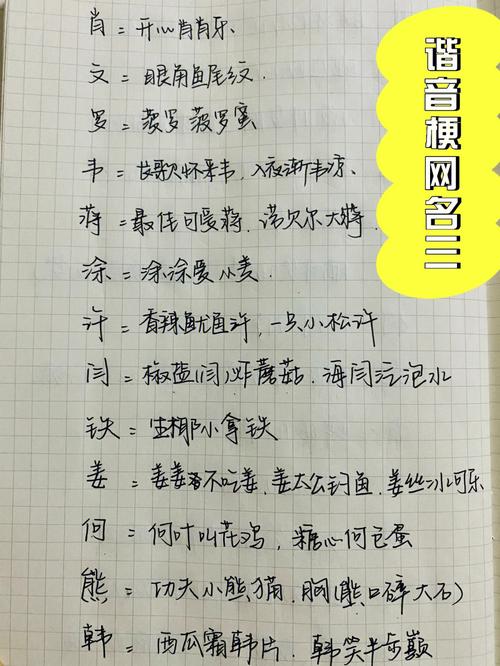 谐音梗网名三
肖 = 开心肖肖乐
文 = 眼角鱼尾纹.
罗 = 菠罗菠罗蜜
韦 = 长歌怀采韦, 入夜渐韦凉、
蒋 = 最佳可爱蒋, 诺贝尔大蒋
涂 = 涂涂爱小美
许 = 香辣鱿鱼许, 一只小松许
闫 = 椒盐(闫)炸蘑菇. 海闫汽泡水
铁 = 生椰小拿铁
姜 = 姜姜不吃姜, 姜太公钓鱼, 姜丝冰可乐
何 = 何叶叫花鸡, 糖心何包蛋
熊 = 功夫小熊猫. 胸(熊口碎大石)
韩 = 西瓜霜韩片. 韩笑半步巅